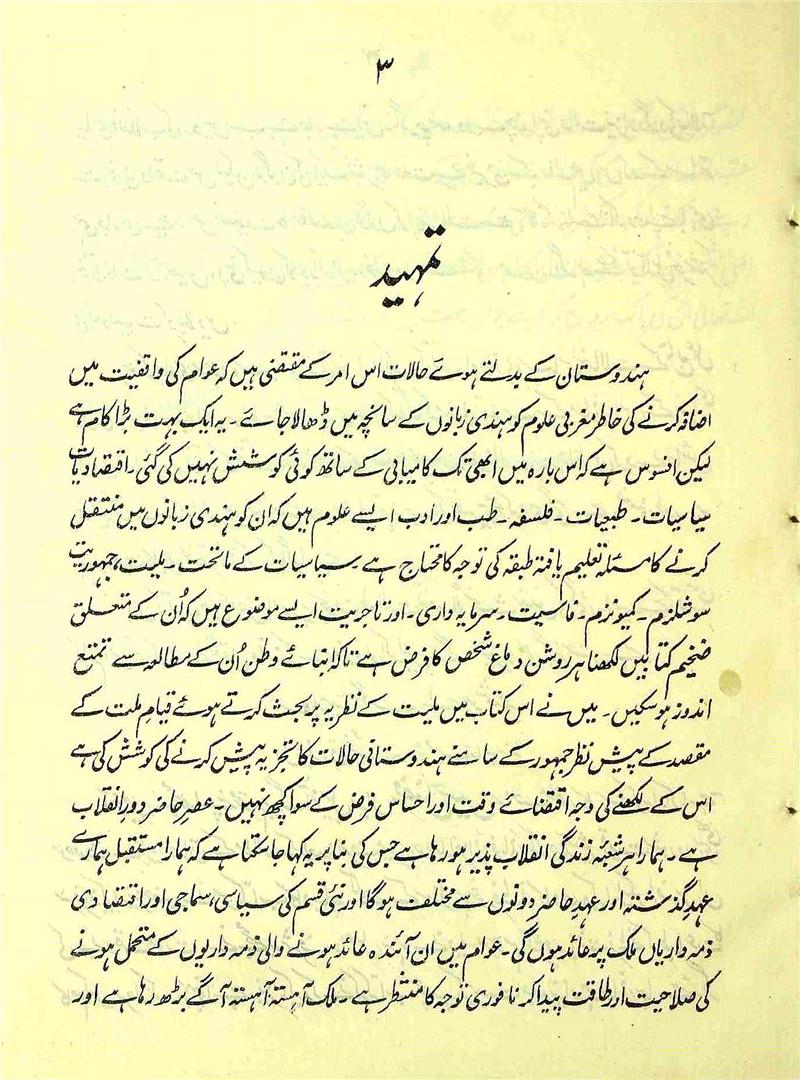 ۳
تمہید
ہندوستان کے بدلتے ہوئے حالات اس امر کے مقتضی ہیں کہ عوام کی واقفیت میں
اضافہ کرنے کی خاطر مغربی علوم کو ہندی زبانوں کے سانچہ میں ڈھالا جائے۔ یہ ایک بہت بڑا کام ہے
لیکن افسوس ہے کہ اس بارہ میں ابھی تک کامیابی کے ساتھ کوئی کوشش نہیں کی گئی۔ اقتصادیات
سیاسیات۔ طبعیات۔ فلسفہ۔ طب اور ادب ایسے علوم ہیں کہ ان کو ہندی زبانوں میں منتقل
کرنے کا مسئلہ تعلیم یافتہ طبقہ کی توجہ کا محتاج ہے۔ سیاسیات کے ماتحت۔ ملیت، جمہوریت
سوشلزم۔ کمیونزم۔ فاسیت۔ سرمایہ داری۔ اور تاجریت ایسے موضوع ہیں کہ اُن کے متعلق
ضخیم کتابیں لکھنا ہر روشن دماغ شخص کا فرض ہے تاکہ ابنائے وطن اُن کے مطالعہ سے تمتع
اندوز ہو سکیں۔ میں نے اس کتاب میں ملیت کے نظریہ پر بحث کرتے ہوئے قیام ملت کے
مقصد کے پیش نظر جمہور کے سامنے ہندوستانی حالات کا تجزیہ پیش کرنے کی کوشش کی ہے
اس کے لکھنے کی وجہ اقتضائے وقت اور احساس فرض کے سوا کچھ نہیں۔ عصر حاضر دور انقلاب
ہے۔ ہمارا ہر شعبۂ زندگی انقلاب پذیر ہو رہا ہے جس کی بنا پر یہ کہا جا سکتا ہے کہ ہمارا مستقبل ہمارے
عہد گذشتہ اور عہد حاضر دونوں سے مختلف ہوگا اور نئی قسم کی سیاسی، سماجی اور اقتصادی
ذمہ داریاں ملک پر عائد ہوں گی۔ عوام میں ان آئندہ عائد ہونے والی ذمہ داریوں کے متحمل ہونے
کی صلاحیت اور طاقت پیدا کرنا فوری توجہ کا منتظر ہے۔ ملک آہستہ آہستہ آگے بڑھ رہا ہے اور